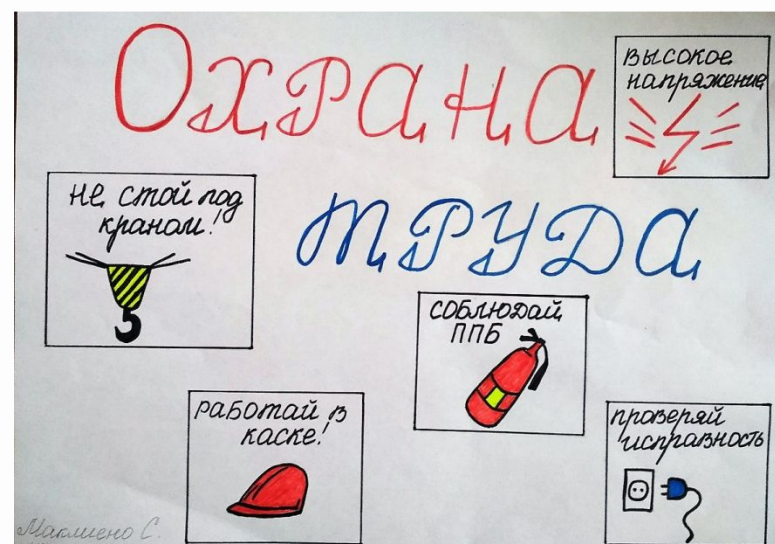 ОХРАНА
ВЫСОКОЕ
НАПРЯЖЕНИЕ
ТРУДА
НЕ СТОЙ ПОД
КРАНОМ!
СОБЛЮДАЙ
ППБ
РАБОТАЙ В
КАСКЕ!
ПРОВЕРЯЙ
ИСПРАВНОСТЬ
С.